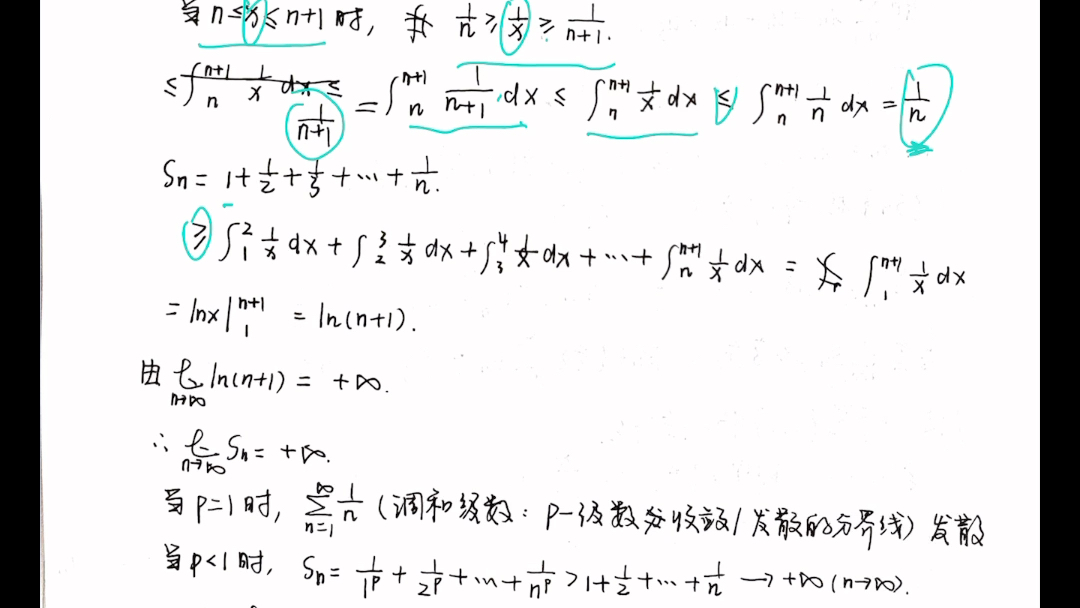 当 n ≤ x ≤ n+1 时, 有 1/n ≥ 1/x ≥ 1/(n+1).
1/(n+1) = ∫_n^{n+1} 1/(n+1) dx ≤ ∫_n^{n+1} 1/x dx ≤ ∫_n^{n+1} 1/n dx = 1/n
Sn = 1 + 1/2 + 1/3 + ⋯ + 1/n.
≥ ∫_1^2 1/x dx + ∫_2^3 1/x dx + ∫_3^4 1/x dx + ⋯ + ∫_n^{n+1} 1/x dx = ∫_1^{n+1} 1/x dx
= lnx |_1^{n+1} = ln(n+1).
由 lim_{n→∞} ln(n+1) = +∞.
∴ lim_{n→∞} Sn = +∞.
当 p=1 时, ∑_{n=1}^∞ 1/n (调和级数: p-级数 收敛/发散的分界线) 发散
当 p<1 时, Sn = 1/1^p + 1/2^p + ⋯ + 1/n^p > 1 + 1/2 + ⋯ + 1/n → +∞ (n→∞).